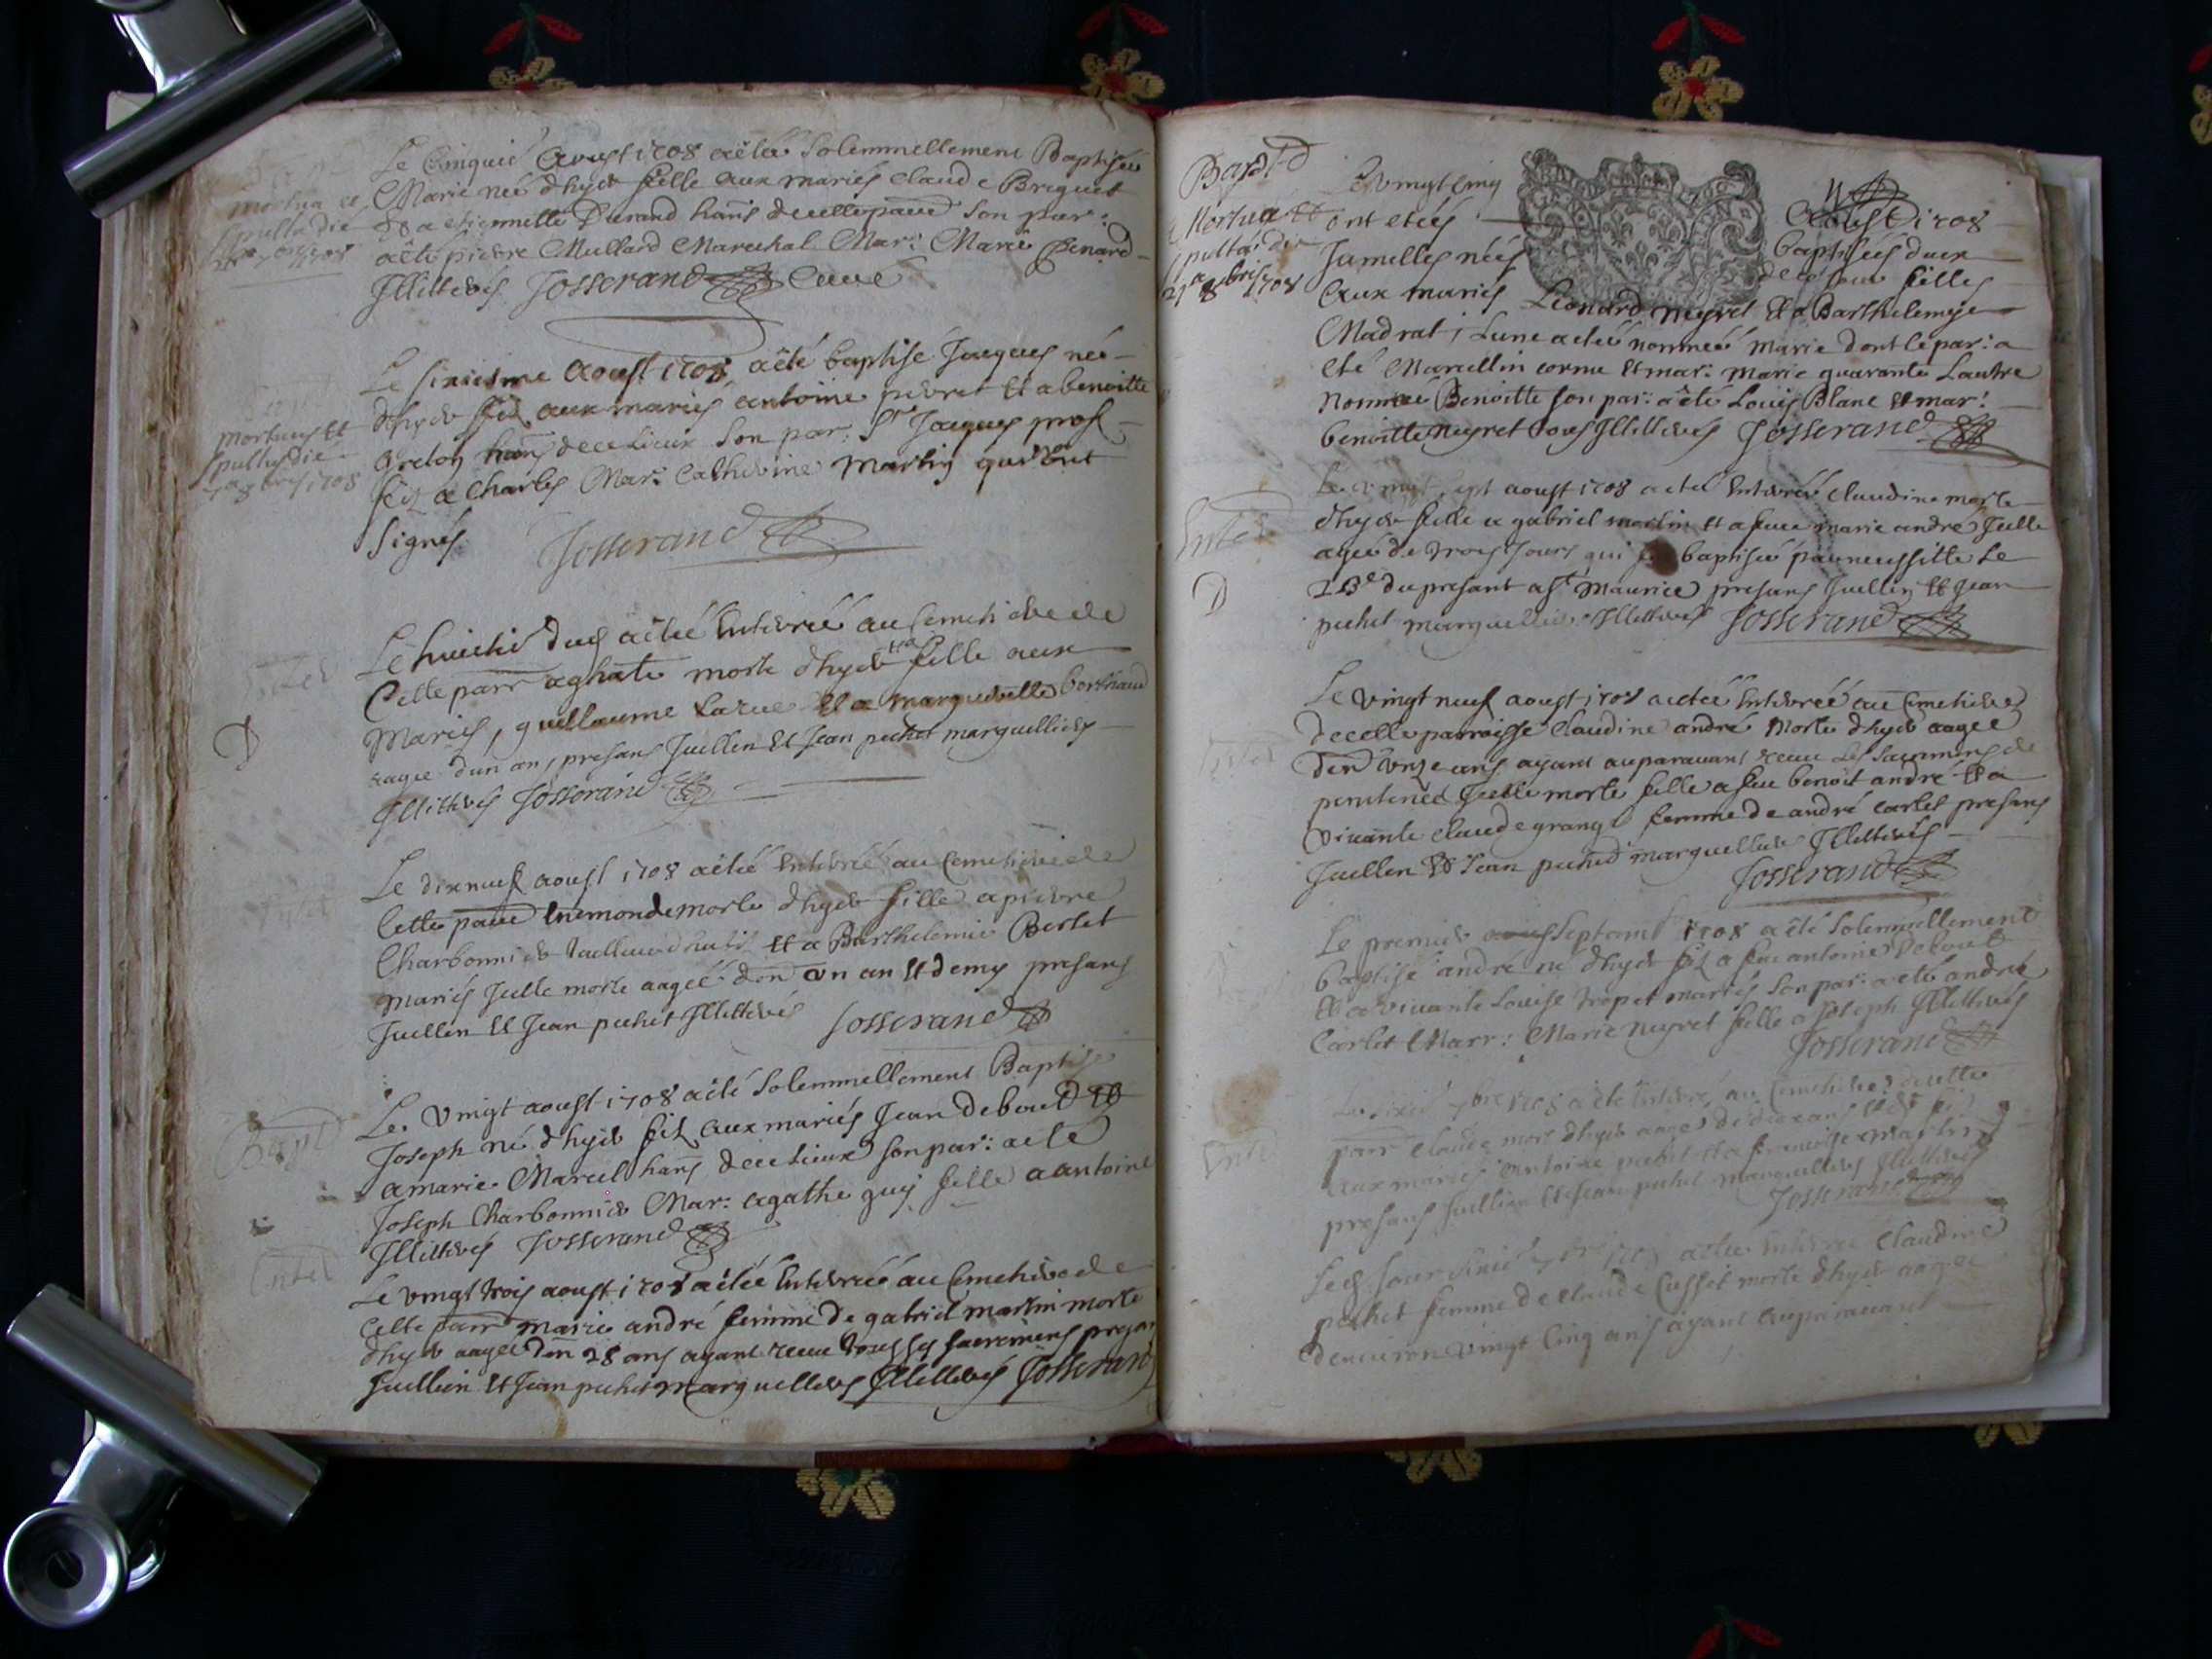 Bapt
mortua et
sepulta die
1708
Le Cinquie Aoust 1708 a êtée Solemnellement Baptisée
Marie née d'hyer fille aux mariés Claude Briquet
et a etiennette Durand hans de cette parre son par:
a été pierre Mullard Marechal Mar: Marie Penard
Illitterés Josserand Curé
mortuus et
sepultus die
7a 8bris 1708
Le sixiesme Aoust 1708 a êté baptisé Jacques né
d'hyer filz aux mariés antoine peyret et a benoitte
hans de ce lieux son par. Sr Jacques prof
filz a Charles Mar: Catherine Martin qui ont
signés Josserand
Enter
D
Le huictie dud a êtée Enterrée au Cemetiere de
Cette parr aghate morte d'hyer fille aux
Mariés, guillaume Larue et a marguerite berthaud
aagee d'un an, presans Juellen et Jean pichet marguelliers
Illitterés Josserand
Enter
Le dixneuf aoust 1708 a êtée Enterrée au Cemetiere de
Cette parre Enemonde morte d'hyer fille a pierre
Charbonnier et a Barthelemie Bertet
mariés Icelle morte aagée d'en un an et demy presans
Juellen et Jean pichet Illitterés Josserand
Bapt
Le vingt aoust 1708 a êté Solemnellement Baptisé
Joseph né d'hyer filz aux mariés Jean debout et
a marie Marcel hans de ce Lieux son par: a ete
Joseph Charbonnier Mar: agathe guy fille a antoine
Illitterés Josserand
Enter
Le vingt trois aoust 1708 a êtée Enterrée au Cemetiere de
Cette parr marie andré femme de gabriel martin morte
d'hyer aagee d'en 28 ans ayant receu tous ses sacremens presans
Juellien et Jean pichet marguelliers Illitterés Josserand
Bapt D
Mortua et
sepulta die
21a 8bris 1708
Le vingt cinq Aoust 1708
ont etées baptisées deux
Jumelles nées de ce jour filles
aux mariés Leonard neyret et a Barthelemye
Madrat; Lune a etée nommée Marie dont le par: a
eté Marcellin cornu et mar: Marie quarante Lautre
Nommée Benoitte son par: a été Louis Blanc et mar:
benoitte neyret tous Illitterés Josserand
Enter
D
Le vingt sept aoust 1708 a eté Enterrée Claudine morte
d'hyer fille a gabriel martin et a feue marie andré Icelle
agée de trois jours qui baptisée par neussitte le
23e du presant a St Maurice presans Juellen et Jean
pichet marguelliers Illitterés Josserand
Enter
Le vingt neuf aoust 1708 a etée Enterrée au Cemetiere
de cette parroisse Claudine andré Morte d'hyer aagee
d'en unze ans ayant auparavant receu Les Sacremens de
penitence Icelle morte fille a feu benoit andré et a
vivante claude grange femme de andré carlet presans
Juellen et Jean pichet marguelliers Illitterés
Josserand
Le premier Septamb 1708 a êté Solemnellement
baptisé andré né d'hyer filz a feu antoine debout
et a vivante Louise tropet mariés Son par: a eté andré
Carlet Marr: Marie neyret fille a Joseph Illitterés
Josserand
Enter
Le sixie 7bre 1708 a êté Enterré au Cemetiere de cette
parr Claude mort d'hyer aagé de deux ans et filz
aux mariés antoine pichet et a francoise martin
presans Juellien et Jean pichet marguelliers Illitterés
Josserand
Led. jour sixie 7bre 1708 a etée Enterrée Claudine
pichet femme de Claude Cusset morte d'hyer aagee
d'environ vingt Cinq ans ayant auparavant